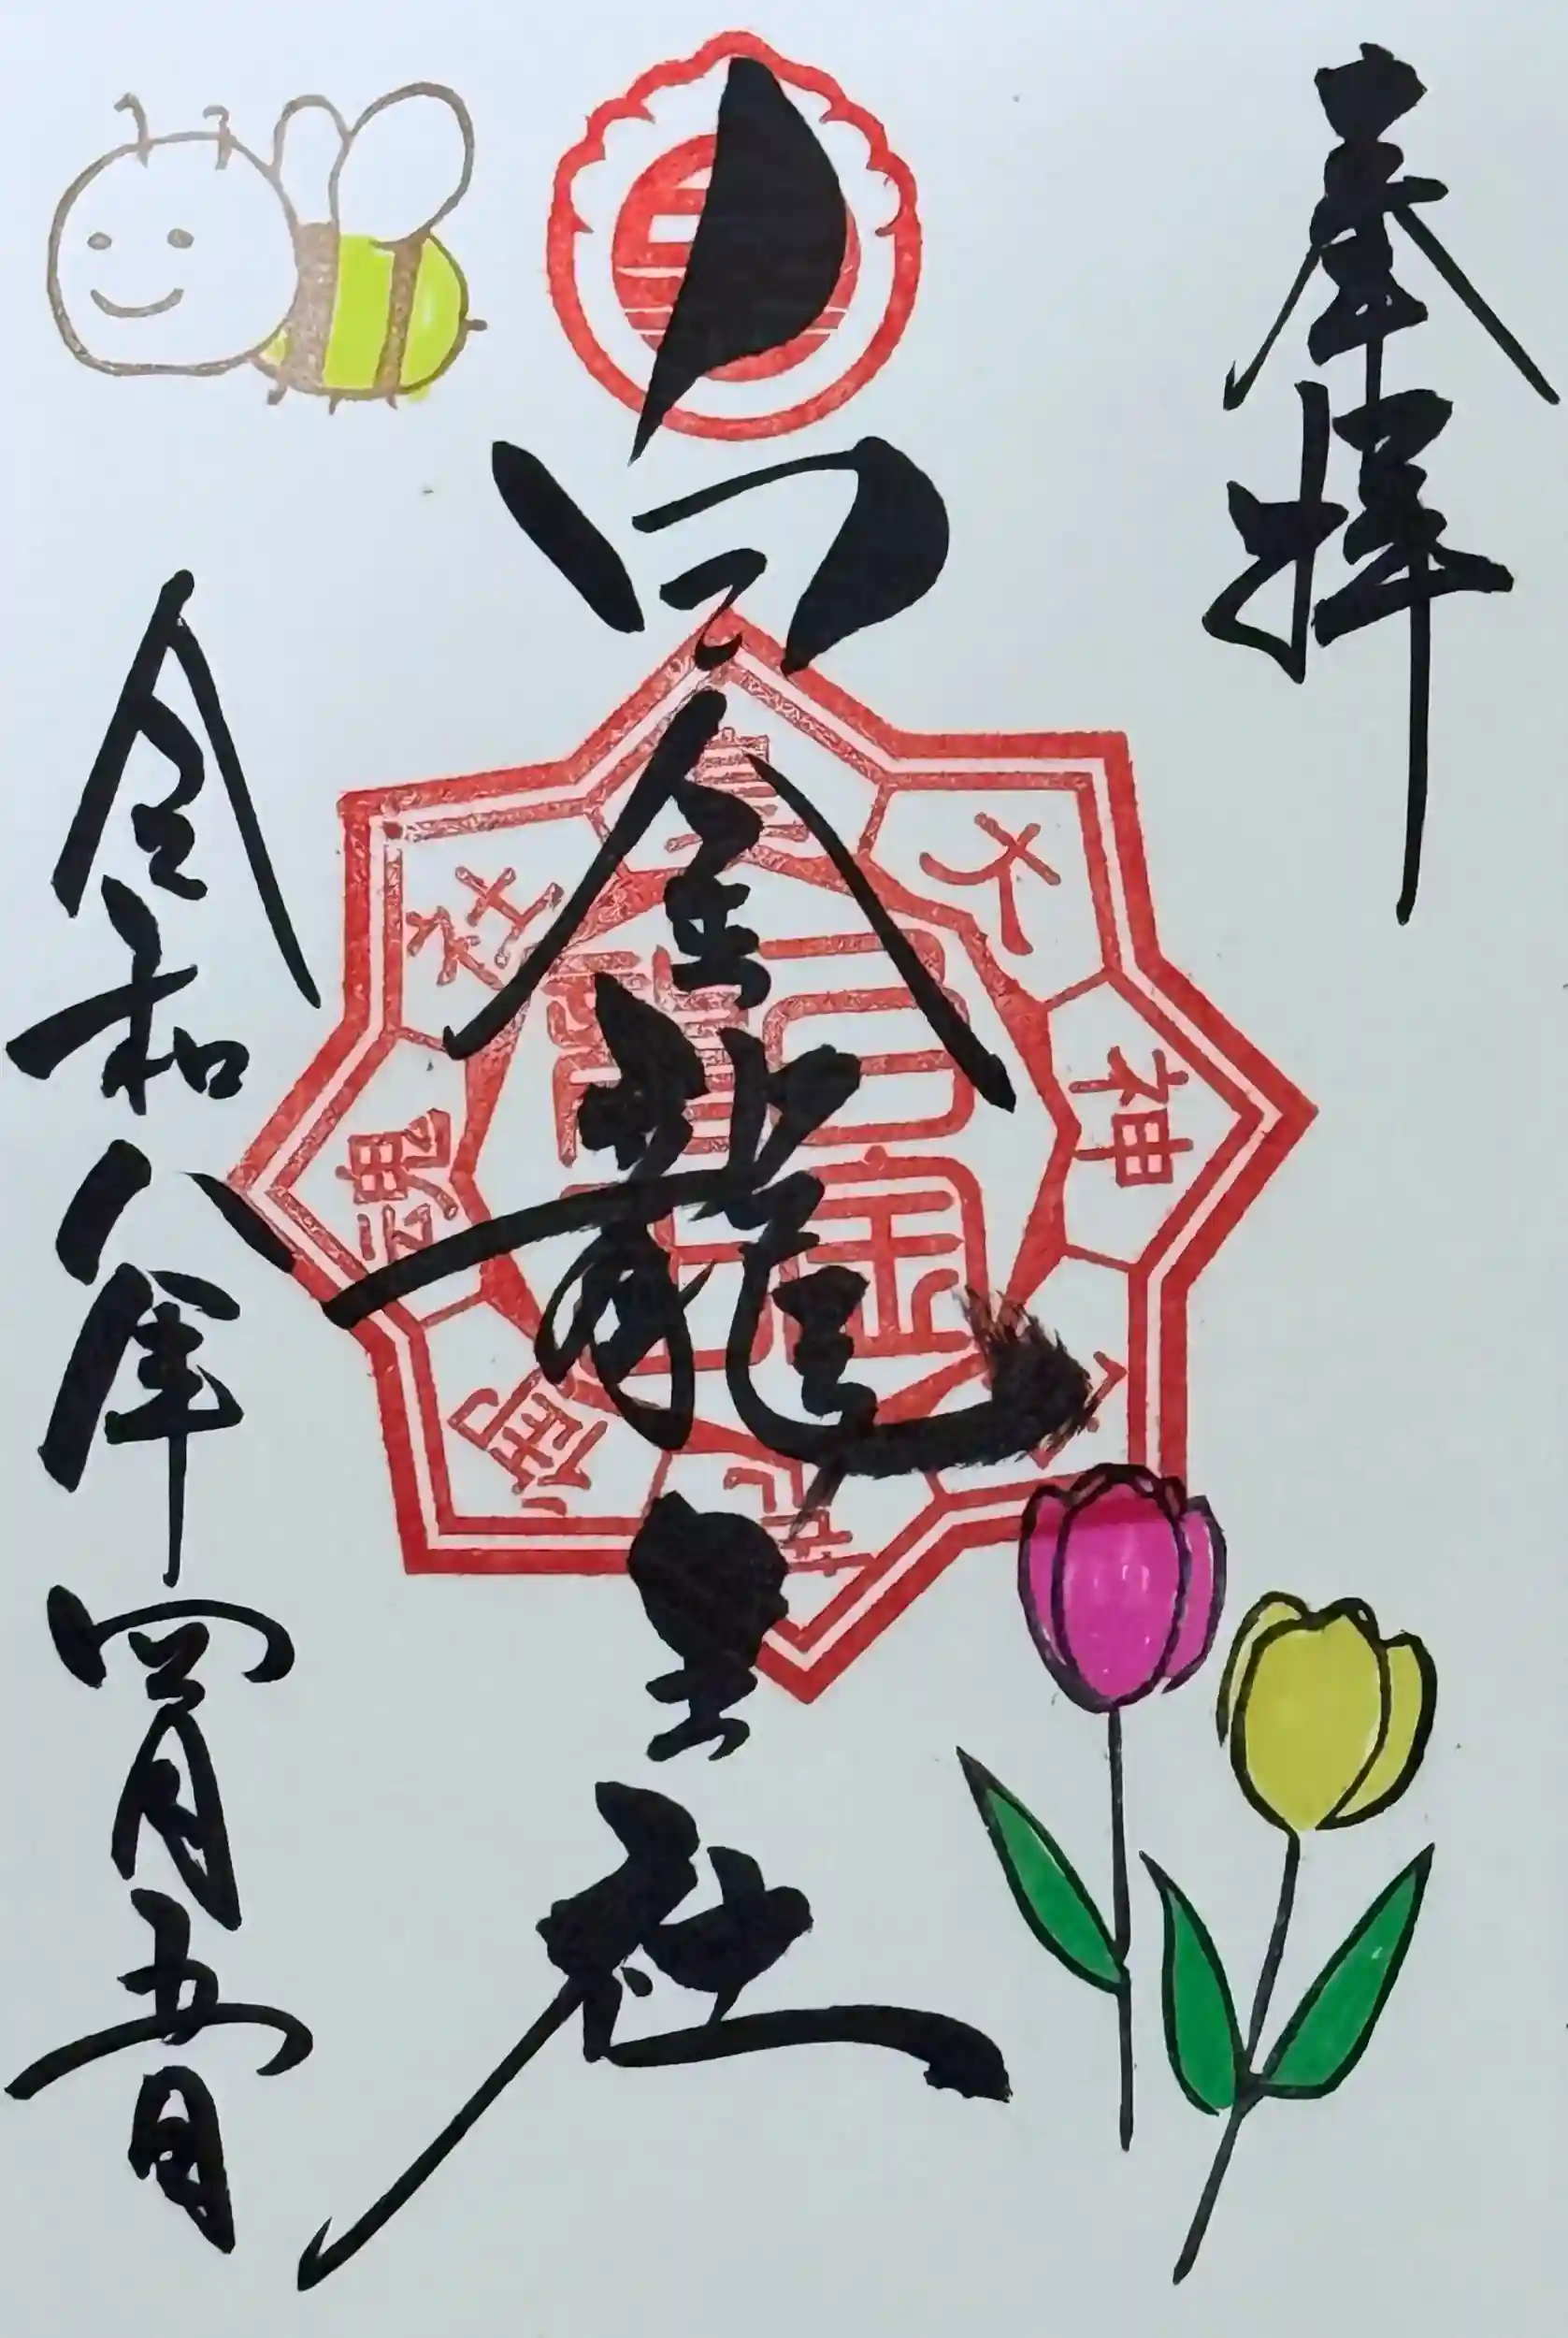 奉拝
白金龍王社
令和八年四月五日